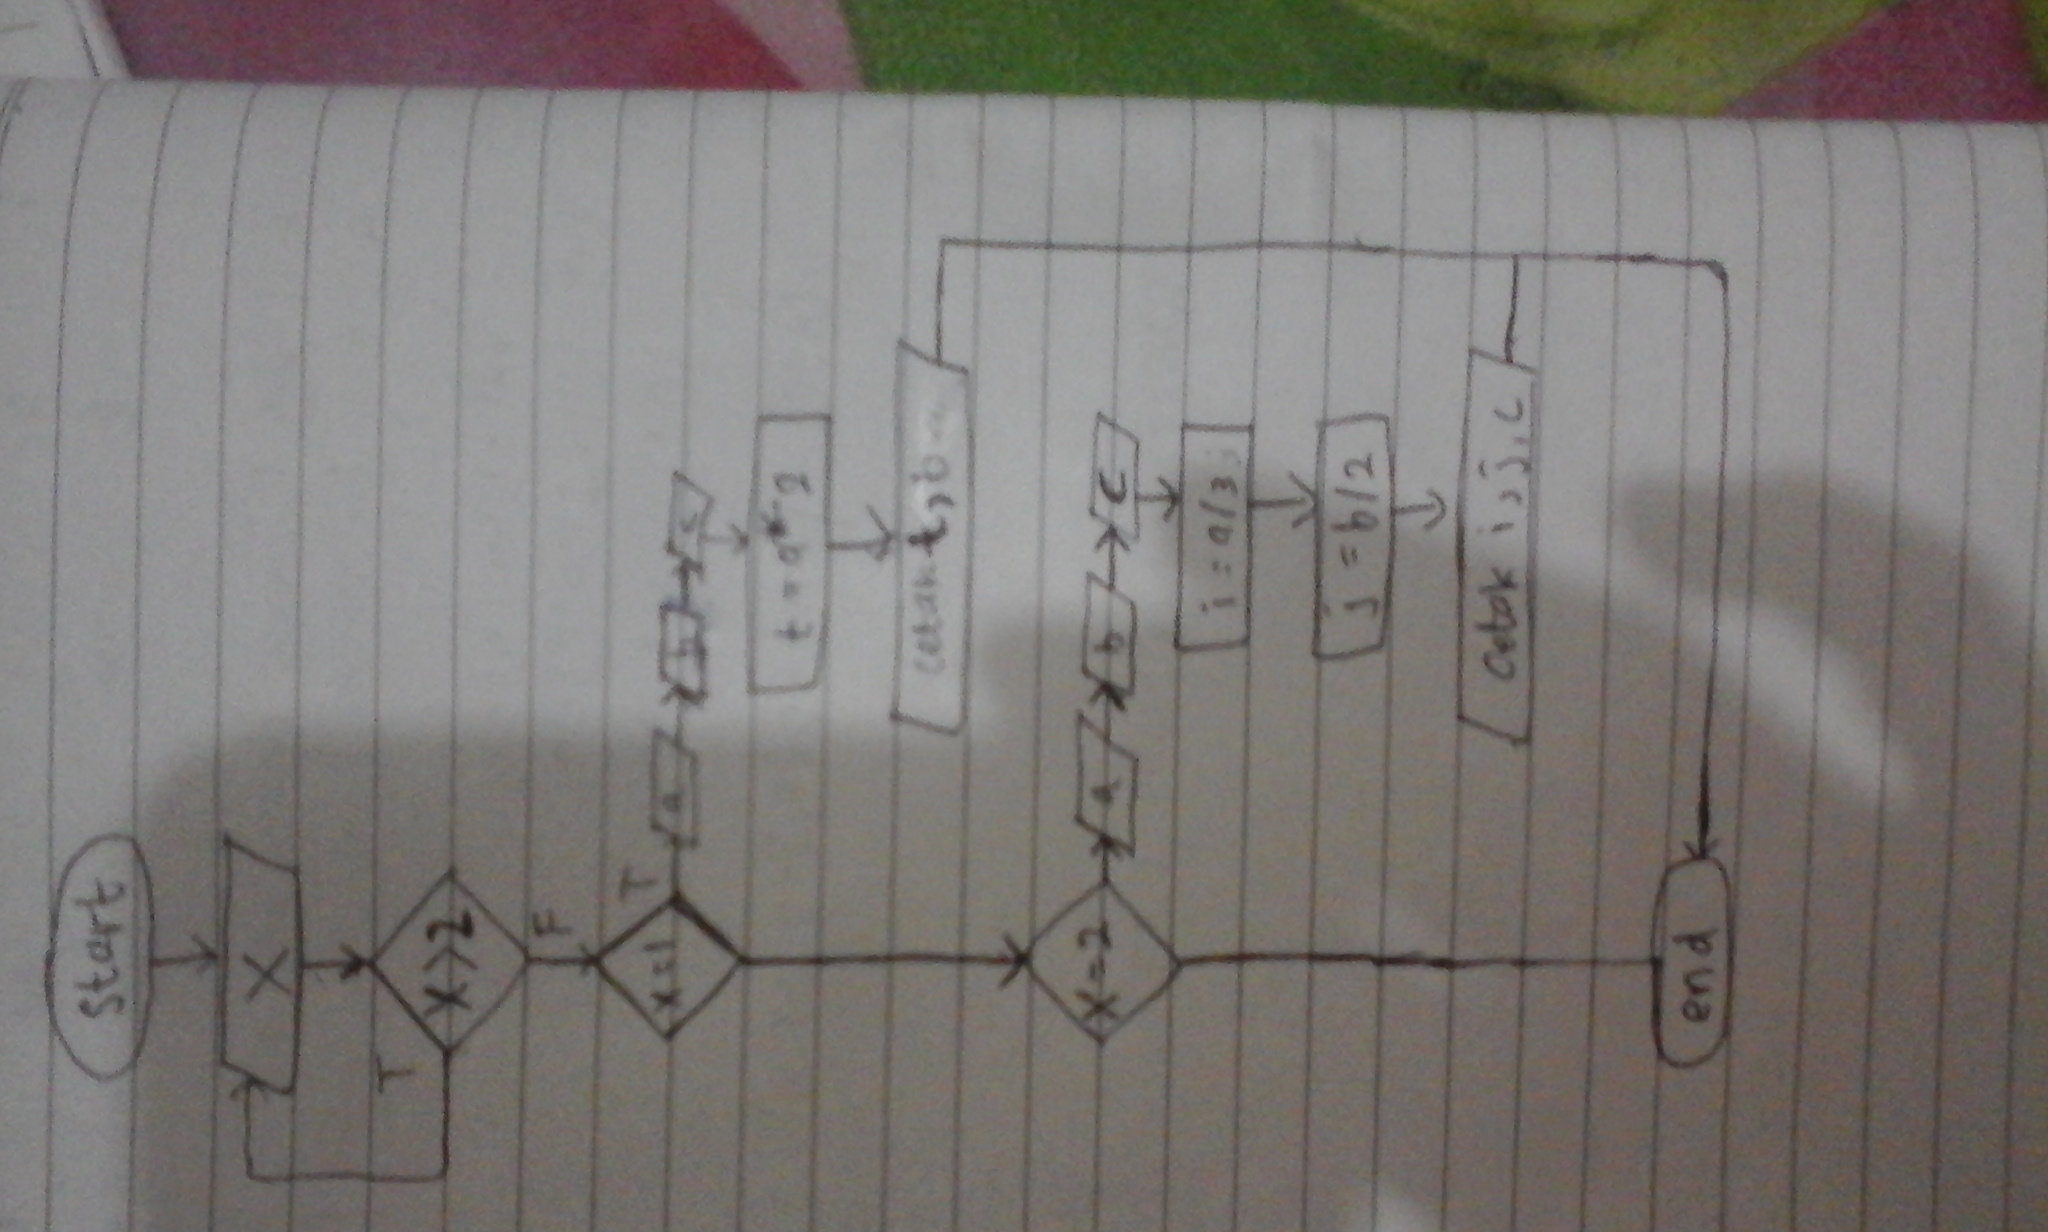 start
X
T
X>2
F
x=1
T
a
b
c
t = a* 2
cetak t, b
X=2
a
b
c
i = a/3
j = b/2
cetak i, j, c
end